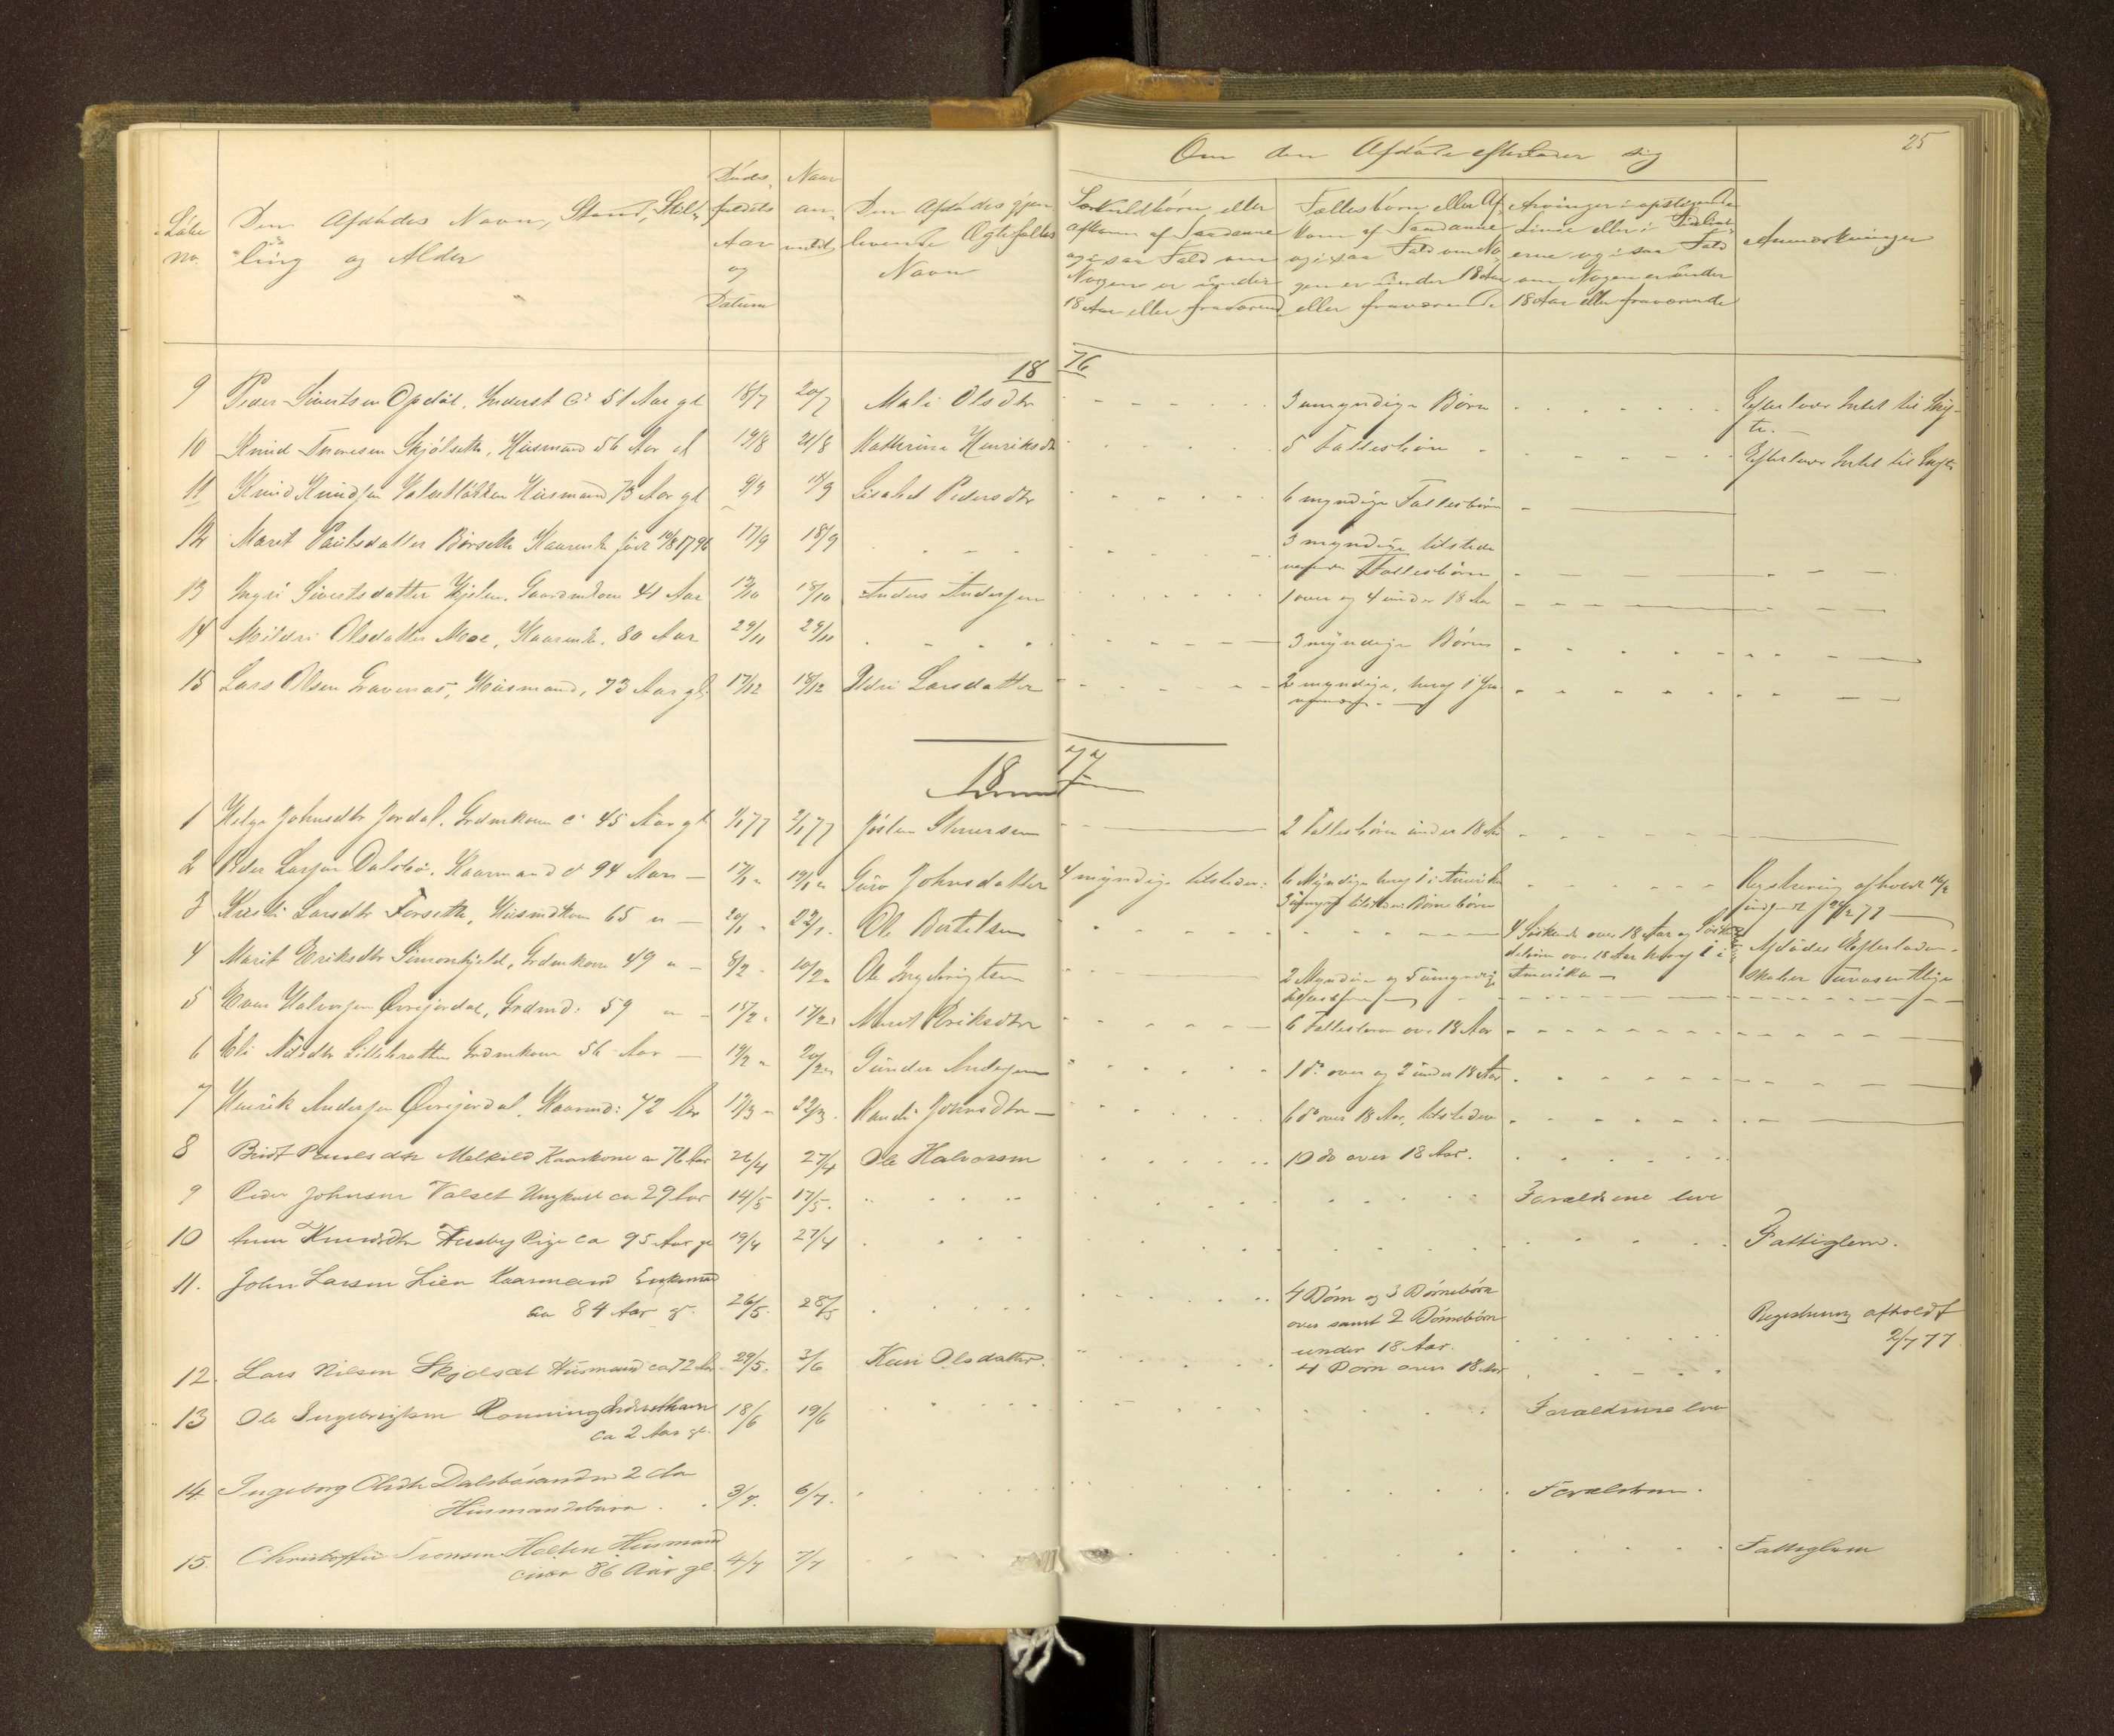 25
Om den Afdøde efterlader sig
Løbe no.
Den Afdødes Navn, Stand, Stilling og Alder
Dødsfaldets Aar og Datum
Naar anmeldt
Den Afdødes gjenlevende Ægtefælles Navn
Særkuldbørn eller
Afkom af Saadanne
og i saa Fald om
Nogen er under
18 Aar eller fraværende
Fællesbørn eller Afkom af Saadanne
og i saa Fald om Nogen er under 18 Aar
eller fraværende
Arvinger i opstigende
Linie eller i Sidelinierne og i saa Fald
om Nogen er under
18 Aar eller fraværende
Anmærkninger
1876
9 Peder Sivertsen Opdøl, Inderst Ca 51 Aar gl 18/7 20/7 Mali Olsdtr 3 umyndige Børn Efterlader Intet til Skifte.
10 Knud Thoresen Skjølseth, Husmand 56 Aar gl 19/8 21/8 Kathrine Henriksdt 5 Fællesbørn Efterlader Intet til Skifte
11 Knud Knudsen Husmand 73 Aar gl 9/9 Lisabet Pedersdtr 6 myndige Fællesbørn
12 Marit Paulsdatter Børseth Kaarenke født 1796 17/9 18/9 3 myndige tilstedeværende Fællesbørn
13 Ingri Sivertsdatter Hjelen, Gaardmkone 41 Aar 18/10 Anders Andersen 1 over og 4 under 18 Aar
14 Mildri Olsdatter Moe, Kaarenke, 80 Aar 24/11 29/11 3 myndige Børn
15 Lars Olsen Gravenæs, Husmand, 73 Aar gl. 17/12 18/12 Ildri Larsdatter 2 myndige, heraf 1
1877
1 Helge Johnsdtr Jordal, Grdmkone c 45 Aar gl 2/1 77 Jøsten 2 Fællesbørn under 18 Aar
2 Peder Larsen Dalsbø, Kaarmand c 94 Aar 17/1 19/1 Guro Johnsdatter 4 myndige tilstede 6 Myndige heraf 1 i Amerika
3 umynd tilstedev Børnebørn Registrering afholdt
3 Larsdtr Forseth, Husmdkone 65 20/1 22/1 Ole Bertelsen 4 Søskende over 18 Aar og Søskendebørn over 18 Aar heraf 1 i Amerika Afdødes Efterladenskaber uvæsentlige
4 Marit Eriksdtr Simonhjeld, Grdmkone 49 8/2 10/2 Ole Ingebrigtsen 2 Myndige og 5 umyndige
5 Even Halvorsen Øvrejordal, Grdmd: 59 15/2 17/2 Marit Eriksdtr 6 Fællesbørn over 18 Aar
6 Eli Nilsdtr Lillebratten Grdmkone 56 Aar 19/2 20/2 Gunder Andersen 1 do over og 2 under 18 Aar
7 Henrik Andersen Øvrejordal, Kaarmd: 72 Aar 19/3 22/3 Randi Johnsdtr 6 do over 18 Aar, tilstedev
8 Paulsdtr Melkild Kaarkone ca 76 Aar 26/4 27/4 Ole Halvorsen 10 do over 18 Aar.
9 Peder Johnsen Valset Ungkarl ca 29 Aar 14/5 17/5. Forældrene leve
10 Anne Knudsdtr Husby Pige ca 95 Aar gl 19/4 27/4 Fattiglem.
11. John Larsen Lien Kaarmand Enkemand
ca 84 Aar gl. 26/5. 28/5 4 Børn og 3 Børnebørn
over samt 2 Børnebørn
under 18 Aar. Registrering afholdt
2/7 77
12. Lars Nilsen Skjølsæt Husmand ca 72 Aar 29/5. 3/6 Kari Olsdatter. 4 Børn over 18 Aar
13 Ole Ingebrigtsen Rønning Inderstbarn
ca 2 Aar gl. 18/6 19/6 Forældrene leve
14. Ingeborg Olsdtr Dalsbøsanden 2 Aar
Husmandsbarn. 3/7. 6/7. Forældrene.
15. Christoffer Tronsen Holten Husmand
circa 86 Aar gl. 4/7 7/7 Fattiglem